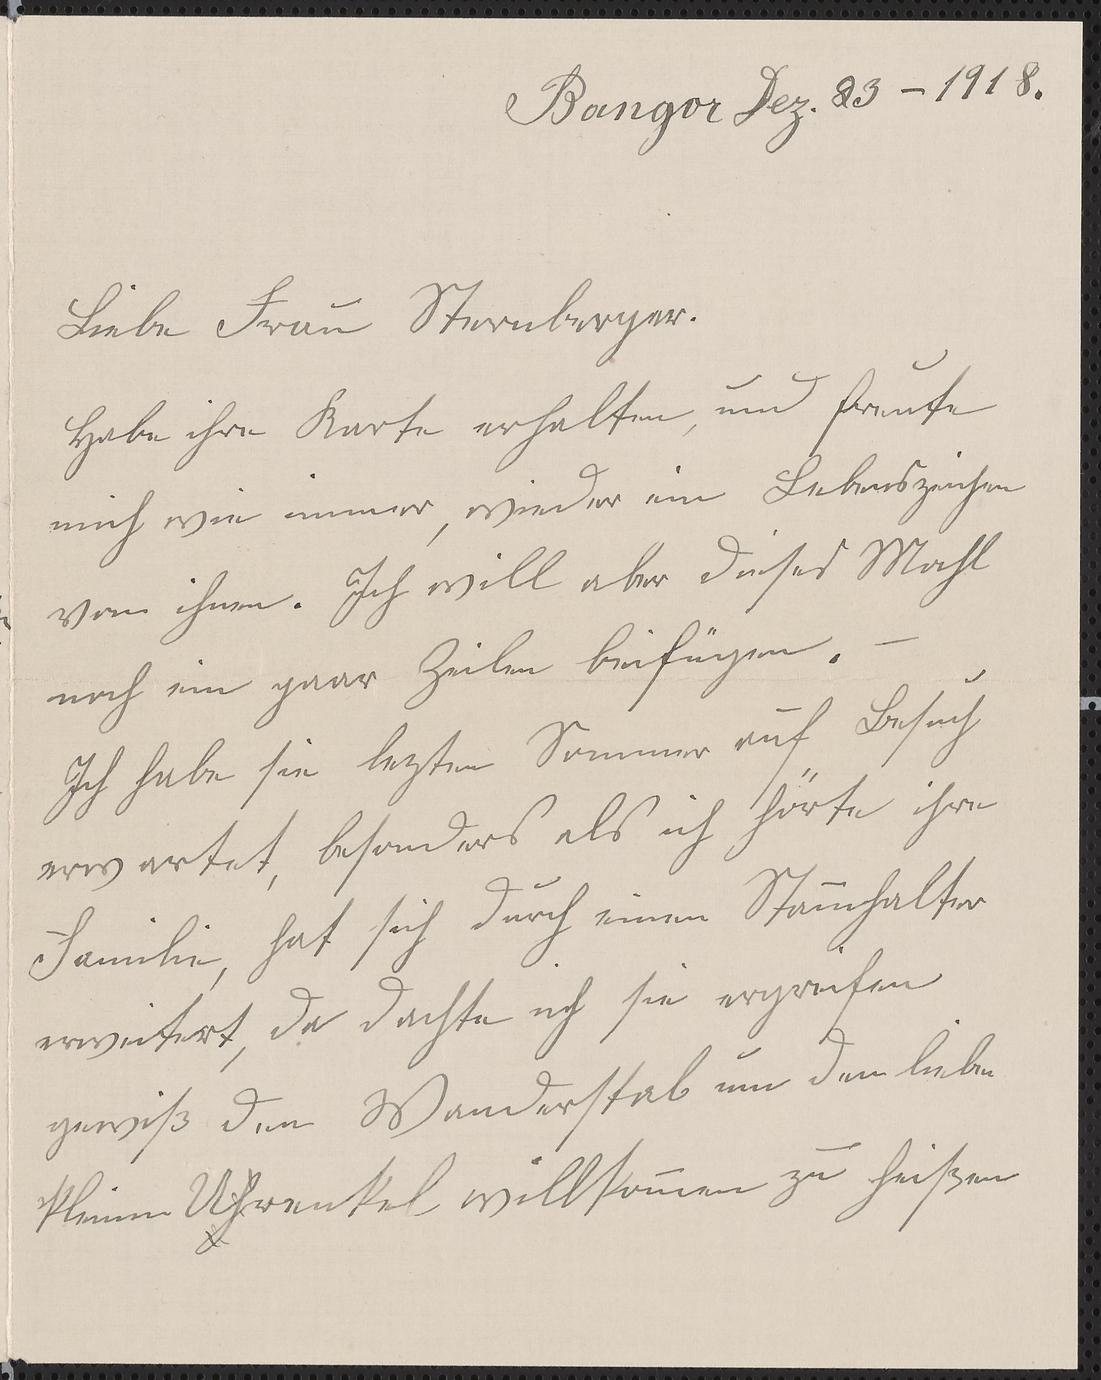 Bangor Dez. 23 – 1918.
Liebe Frau Sternberger.
Habe ihre Karte erhalten, und freute
mich wie immer, wieder ein Lebenszeichen
von ihnen. Ich will aber dieses Mahl
noch ein paar Zeilen beifügen. –
Ich habe sie lezten Sommer auf Besuch
erwartet, besonders als ich hörte ihre
Familie, hat sich durch einen Stam̅halter
erweitert, da dachte ich sie ergreifen
gewiß den Wanderstab um den lieben
kleinen Uhrenkel willkom̅en zu heißen